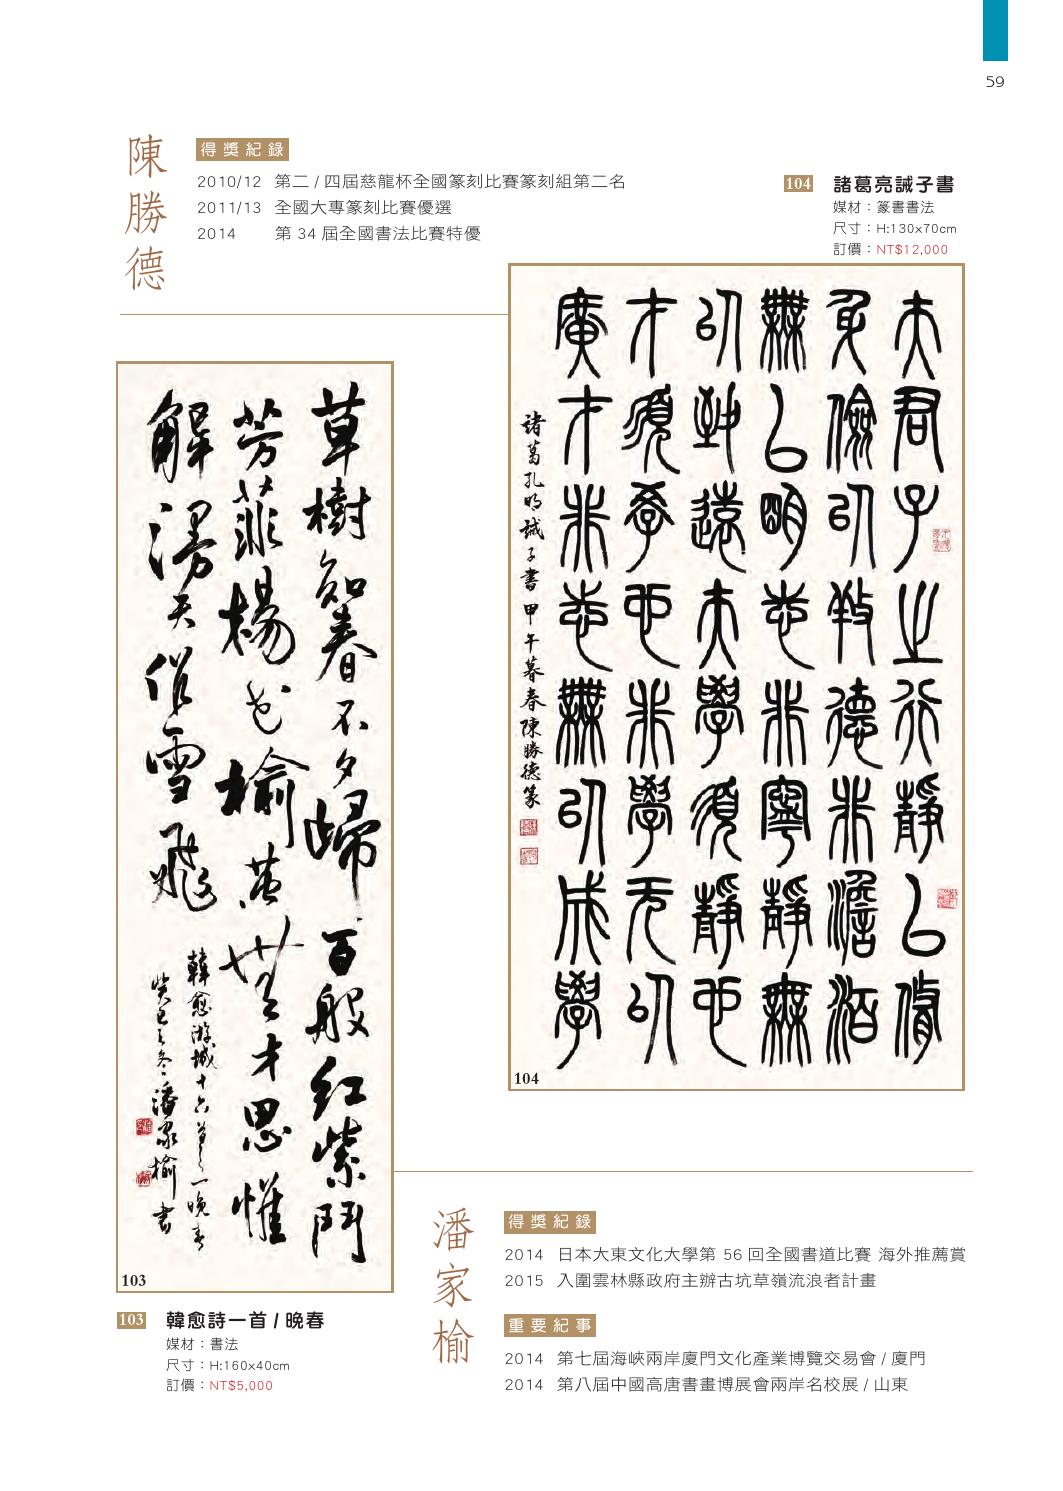 59
陳勝德
得獎紀錄
2010/12 第二 / 四屆慈龍杯全國篆刻比賽篆刻組第二名
2011/13 全國大專篆刻比賽優選
2014 第 34 屆全國書法比賽特優
104 諸葛亮誡子書
媒材：篆書書法
尺寸：H:130x70cm
訂價：NT$12,000
夫君子之行靜以脩
身儉以養德非澹泊
無以明志非寧靜無
以致遠夫學須靜也
才須學也非學无以
廣才非志無以成學
諸葛孔明誡子書甲午暮春陳勝德篆
104
草樹知春不久歸百般紅紫鬥
芳菲楊花榆莢無才思惟
解漫天作雪飛
韓愈游城十六首之一晚春
癸巳之冬潘家榆書
103
103 韓愈詩一首 / 晚春
媒材：書法
尺寸：H:160x40cm
訂價：NT$5,000
潘家榆
得獎紀錄
2014 日本大東文化大學第 56 回全國書道比賽 海外推薦賞
2015 入圍雲林縣政府主辦古坑草嶺流浪者計畫
重要紀事
2014 第七屆海峽兩岸廈門文化產業博覽交易會 / 廈門
2014 第八屆中國高唐書畫博展會兩岸名校展 / 山東